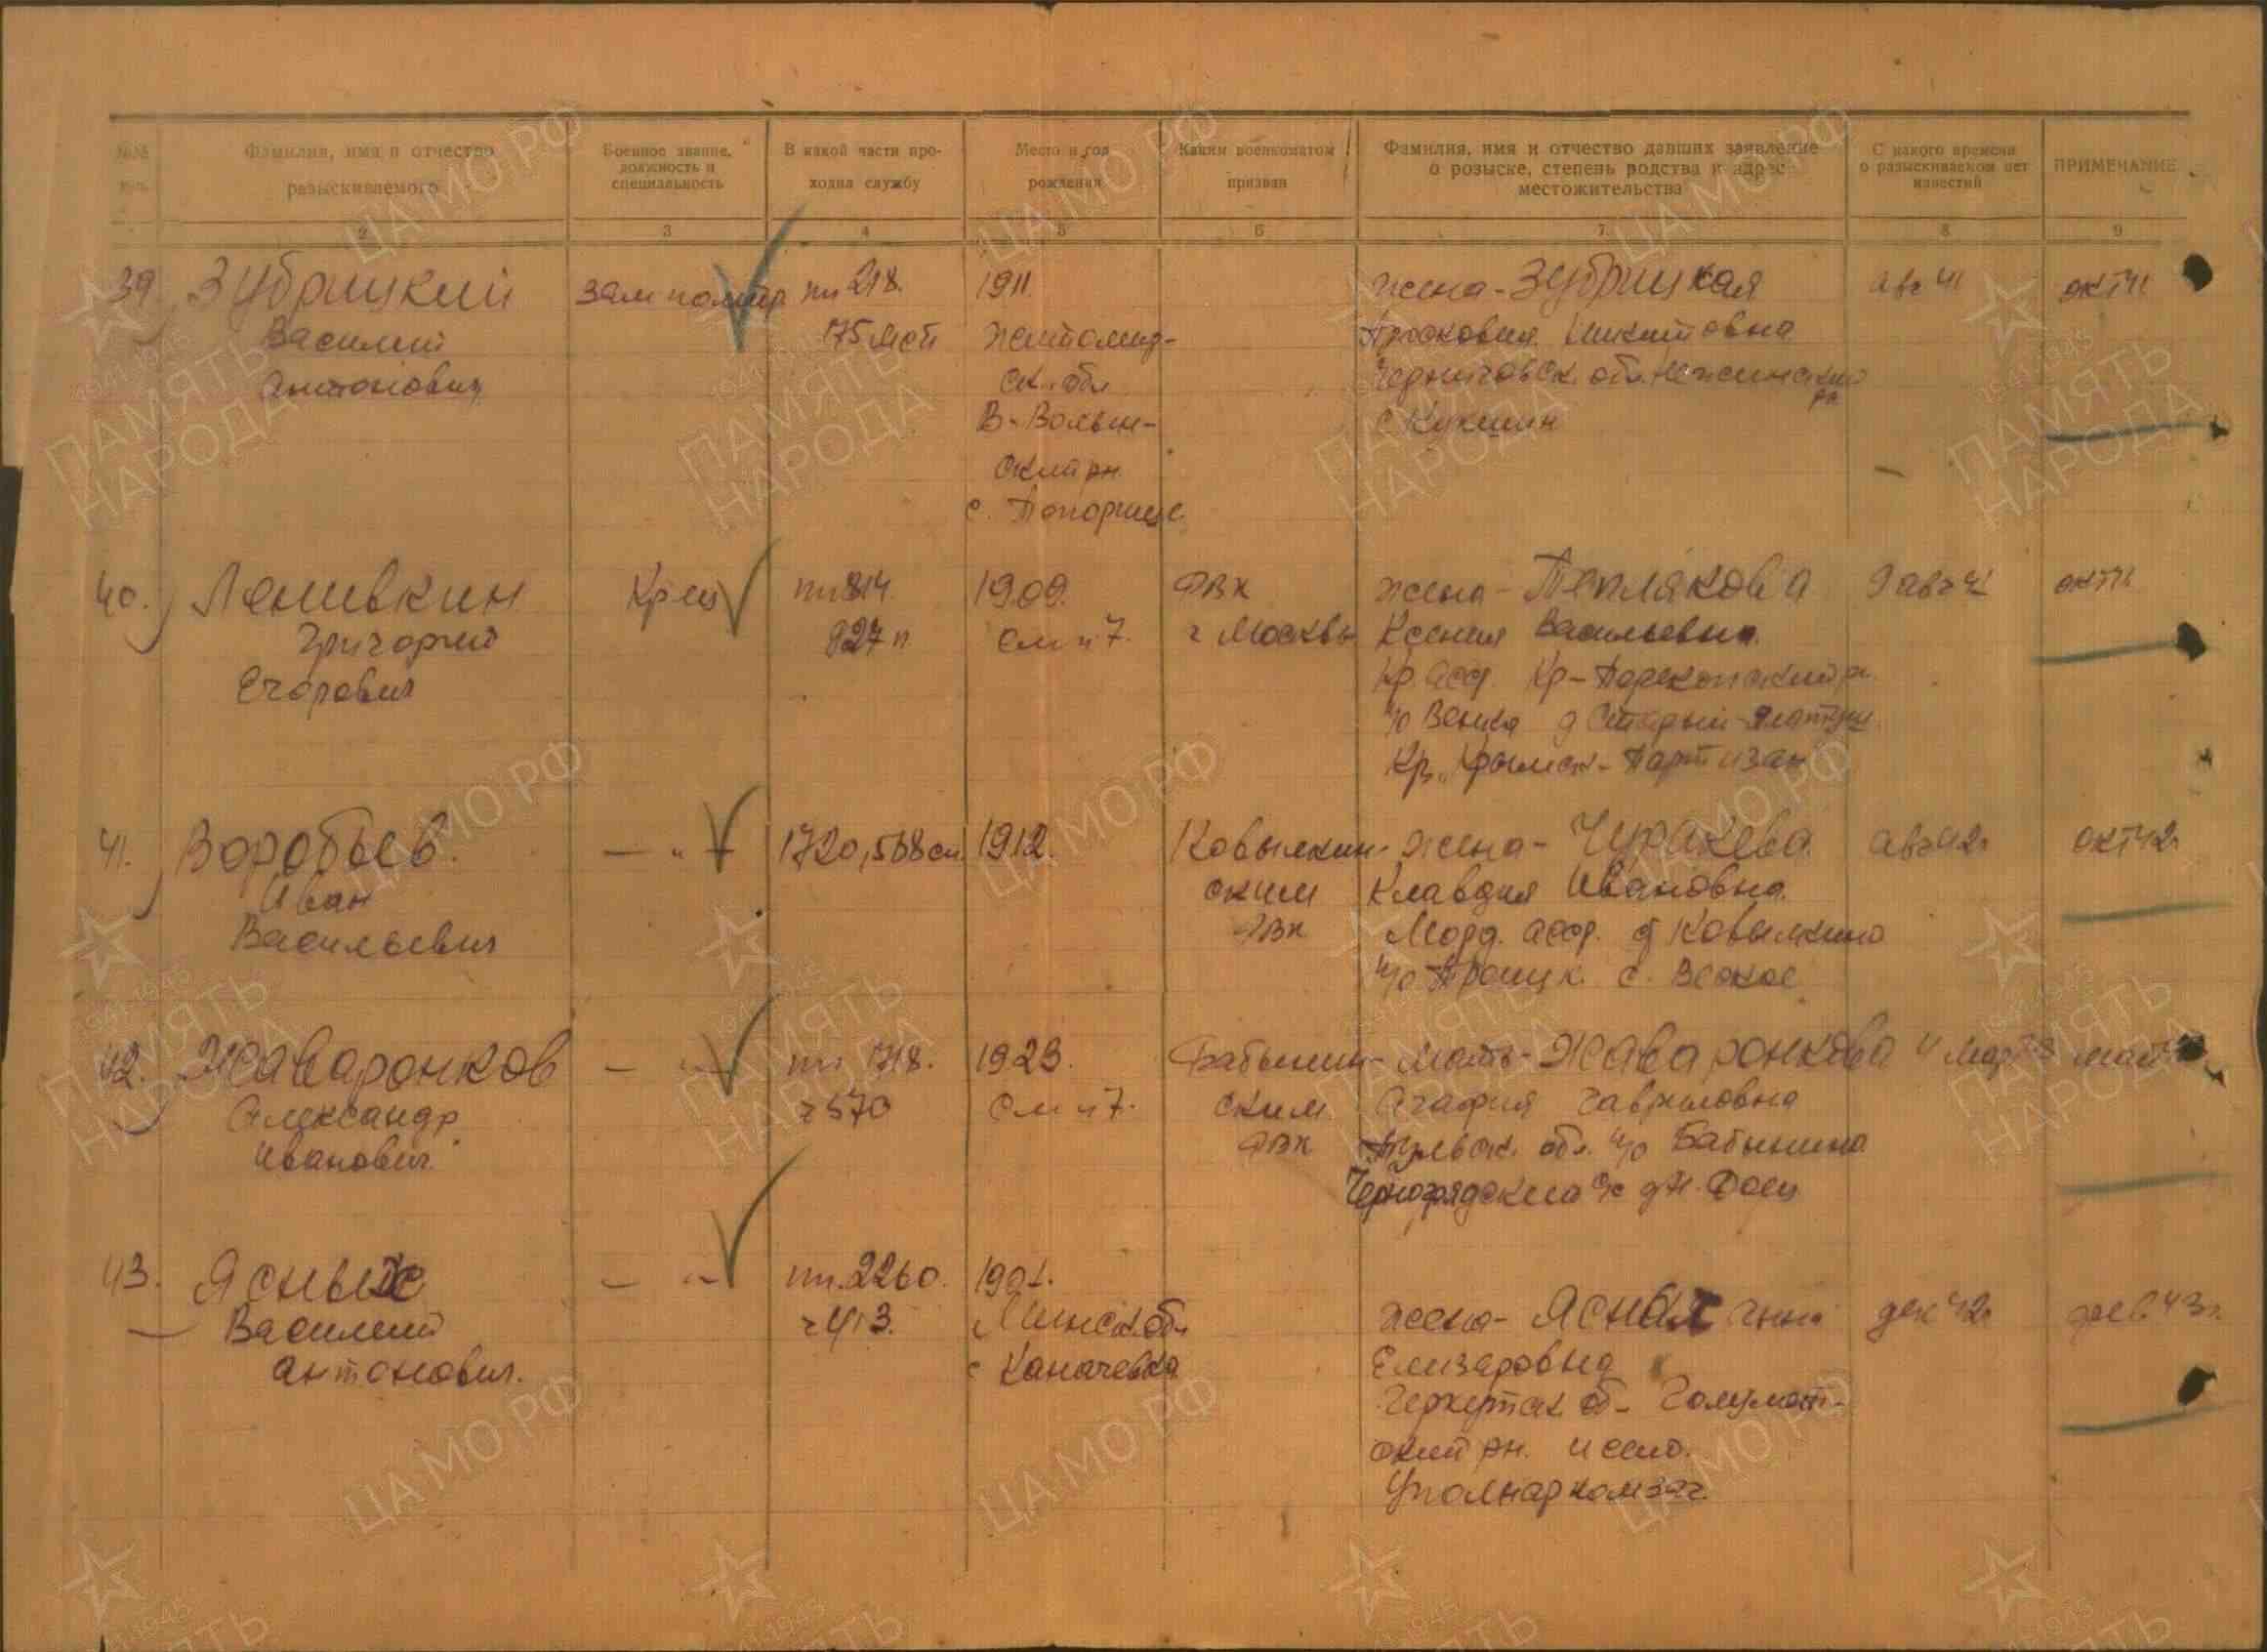 №№
п/п
Фамилия, имя и отчество
разыскиваемого
Военное звание,
должность и
специальность
В какой части про-
ходил службу
Место и год
рождения
Каким военкоматом
призван
Фамилия, имя и отчество давших заявление
о розыске, степень родства и адрес
местожительства
С какого времени
о разыскиваемом нет
известий
ПРИМЕЧАНИЕ
2
3
4
5
6
7
8
9
39.
Зубрицкий
Василий
Антонович
зам политр
пп 218.
175 мсп
1911
Житомир-
ск. обл
В-Волын-
ский рн.
с. Топорище
жена-Зубрицкая
Прасковия Никитовна
Черниговск. обл. Нежинский
рн
с Кукшин
авг 41
окт 41
40.
Ленивкин
Григорий
Егорович
Кр-ец
пп 814
827 п
1909.
см ч 7.
РВК
г Москвы
жена-Теплякова
Ксения Васильевна
Кр. асср. Кр-Перекопский рн
п/о Венка д Старый
Кр. Партизан
9 авг 41
окт 41
41.
Воробьев.
Иван
Васильевич
— " —
1720, 568 сп
1912.
Ковылкин-
ским
РВК
жена-Чуракева
Клавдия Ивановна.
Морд. асср. д Ковылкино
п/о Троицк. с. Веское
авг 42г
окт 42г
42.
Жаваронков
Александр
Иванович.
— " —
пп 1718.
ч 570
1923.
см ч 7.
Бабынин-
ским
РВК
мать-Жаваронкова
Агафия Гавриловна
Тульск. обл. п/о Бабынино
Черногрядскиа с/с
43.
Ясных
Василий
Антонович.
— " —
пп. 2260.
ч 413.
1901.
Минск. обл
с Каначевка
жена-Ясная
Елизаровна
обл. Голумет-
ский рн.
Уполнаркомзаг.
дек 42г
фев. 43г.
ЦА МО РФ
1941-1945
ПАМЯТЬ
НАРОДА